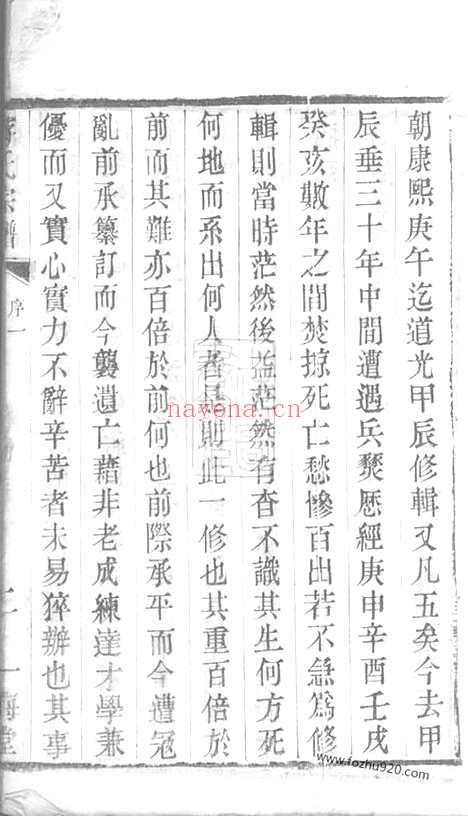 朝康熙庚午迄道光甲辰修輯又凡五矣今去甲
辰垂三十年中間遭遇兵燹歷經庚申辛酉壬戌
癸亥數年之間焚掠死亡愁慘百出若不急爲修
輯則當時茫然後益茫然有杳不識其生何方死
何地而系出何人者是則此一修也其重百倍於
前而其難亦百倍於前何也前際承平而今遭寇
亂前承纂訂而今襲遺亡藉非老成練達才學兼
優而又實心實力不辭辛苦者未易猝辦也其事
氏宗譜
序一
海堂
navona.cn
www.fozhu920.com